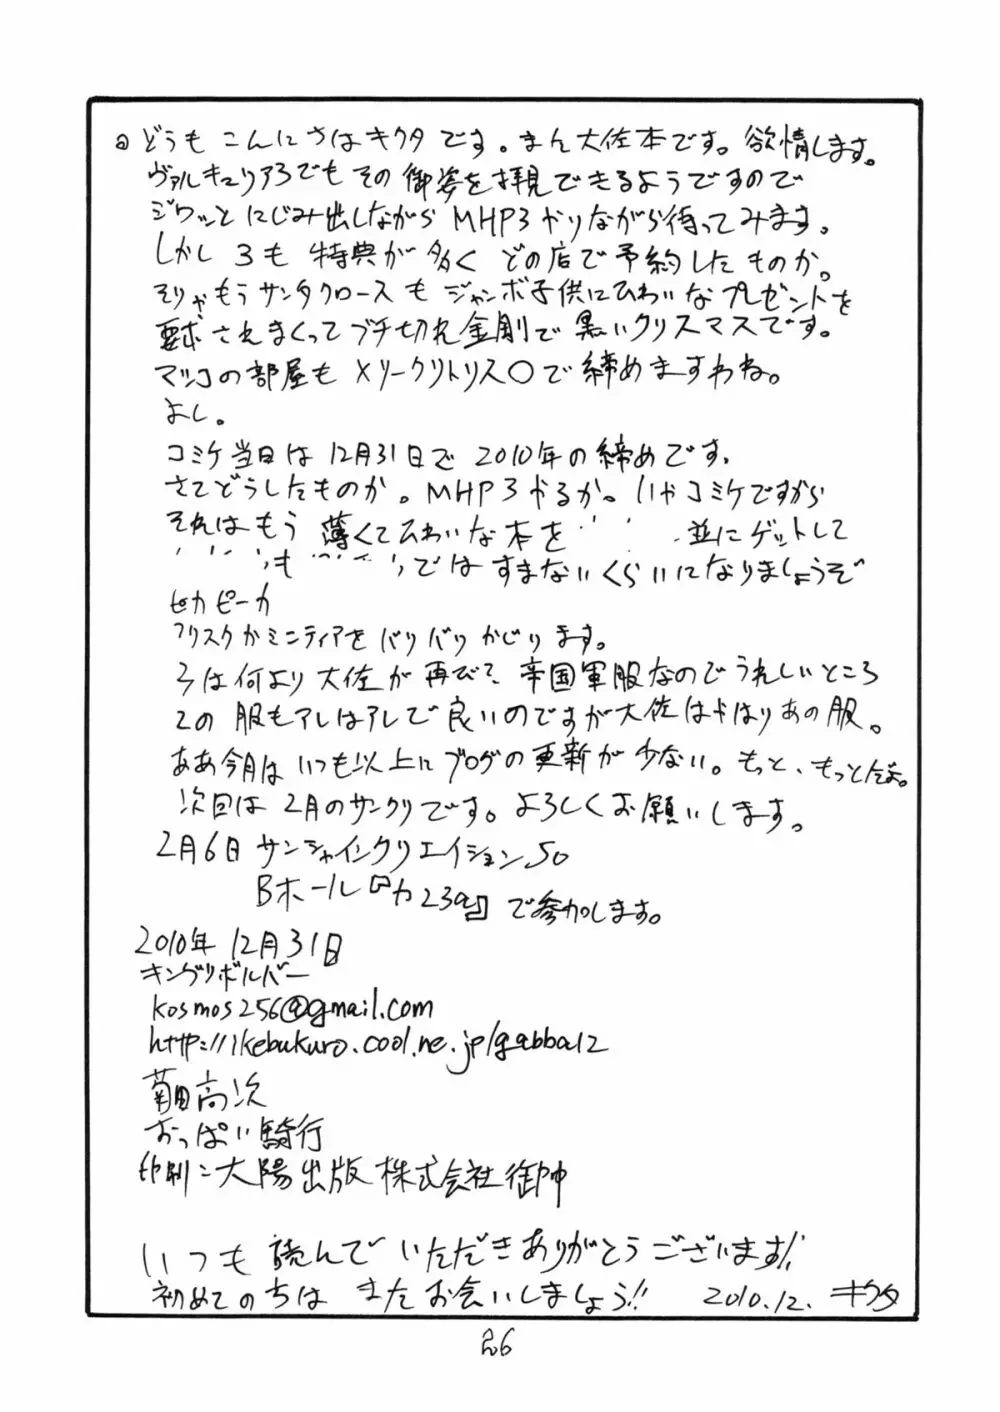 どうも こんにちは キクタ です。まん 大佐本です。欲情します。
ヴァルキュリア3でも その 御姿を拝見できるようですので
ジワッと にじみ出しながら MHP3 やりながら待ってみます。
しかし 3も 特典が 多く どの店で予約したものか。
そりゃもうサンタクロース も ジャンボ子供にひわいなプレゼントを
要求されまくってブチ切れ金剛で 黒いクリスマスです。
マツコの部屋も メリークリトリス〇で締めますわね。
よし。
コミケ当日は 12月31日で 2010年の締めです。
さてどうしたものか。MHP3やるか。いやコミケですから
それはもう 薄くてひわいな本を 並にゲットして
も ではすまないくらいになりましょうぞ
ピカピーカ
フリスクかミンティアを バリバリかじります。
3は何より大佐が再びで、帝国軍服なのでうれしいところ
2の服もアレはアレで良いのですが大佐はやはりあの服。
ああ今月はいつも以上にブログの更新が少ない。もっと、もっとだよ。
次回は 2月のサンクリです。よろしくお願いします。
2月6日 サンシャインクリエイション50
Bホール『カ23a』で参加します。
2010年 12月31日
キングリボルバー
kosmos256@gmail.com
http://ikebukuro.cool.ne.jp/gabba12
菊田高次
おっぱい騎行
印刷:大陽出版株式会社御中
いつも 読んで いただき ありがとうございます!!
初めてのちは またお会いしましょう!! 2010.12. キクタ
26